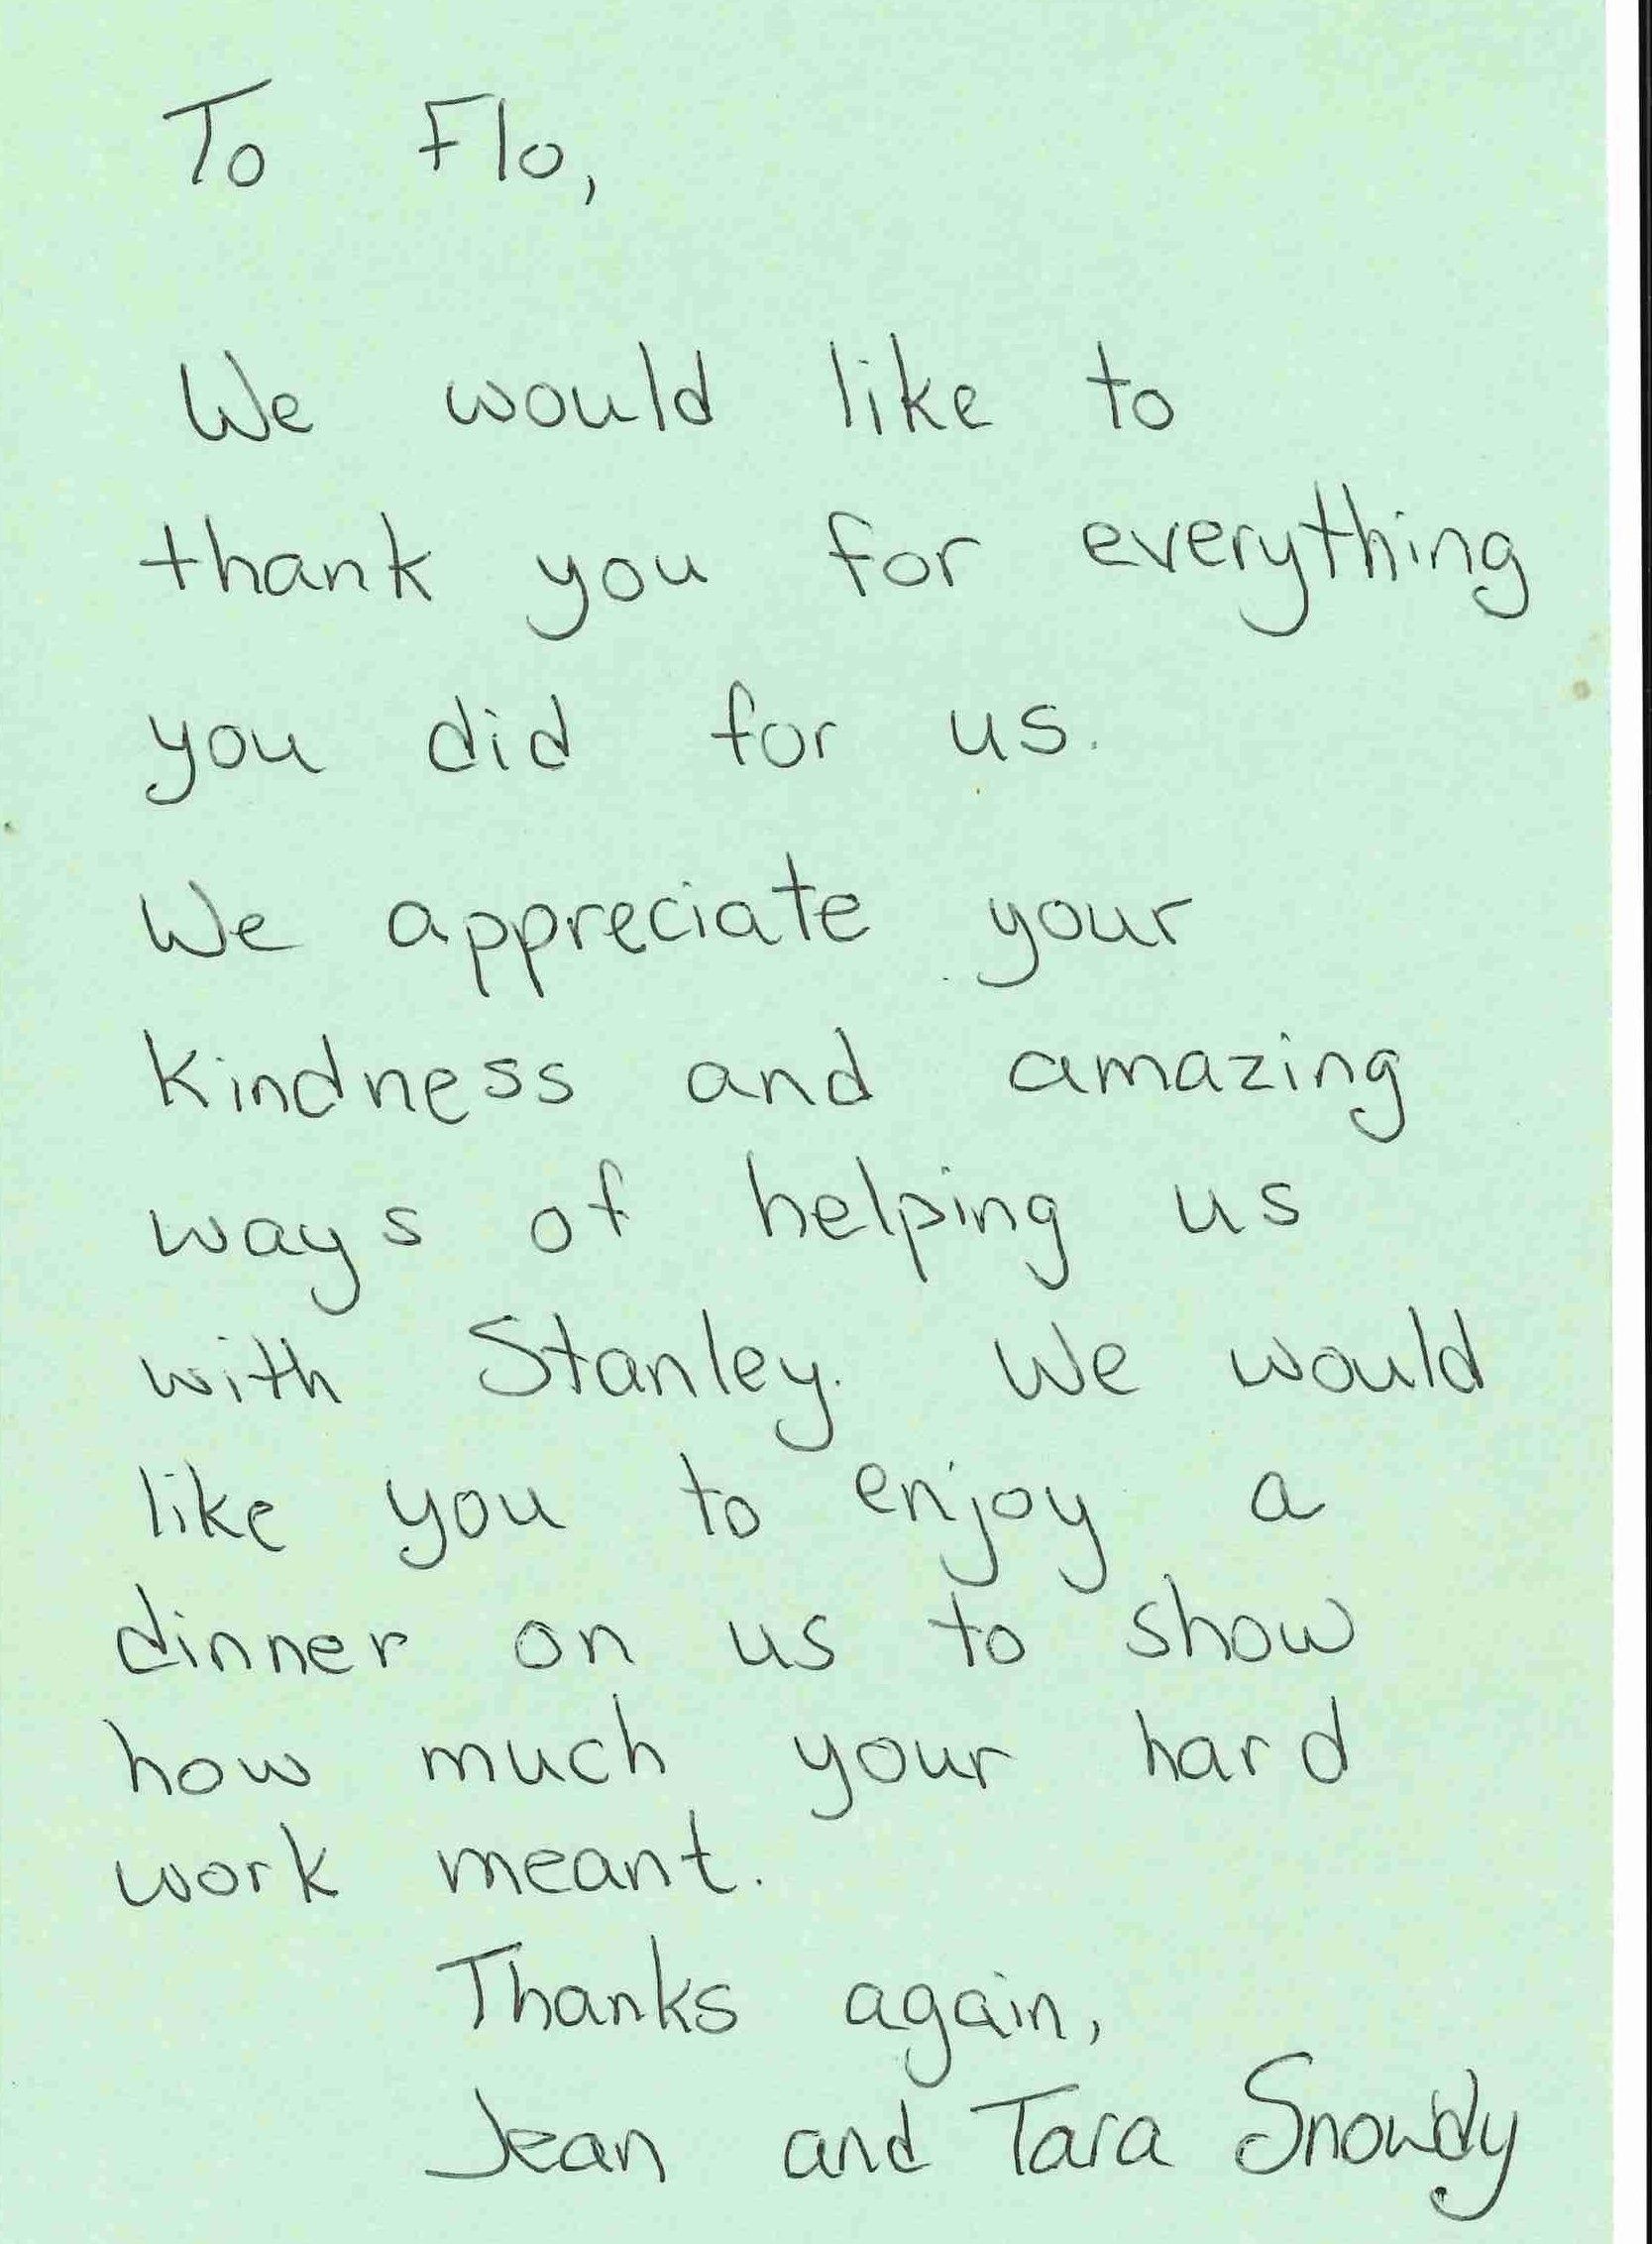 To Flo,
We would like to
thank you for everything
you did for us.
We appreciate your
kindness and amazing
ways of helping us
with Stanley. We would
like you to enjoy a
dinner on us to show
how much your hard
work meant.
Thanks again,
Jean and Tara Snowdy